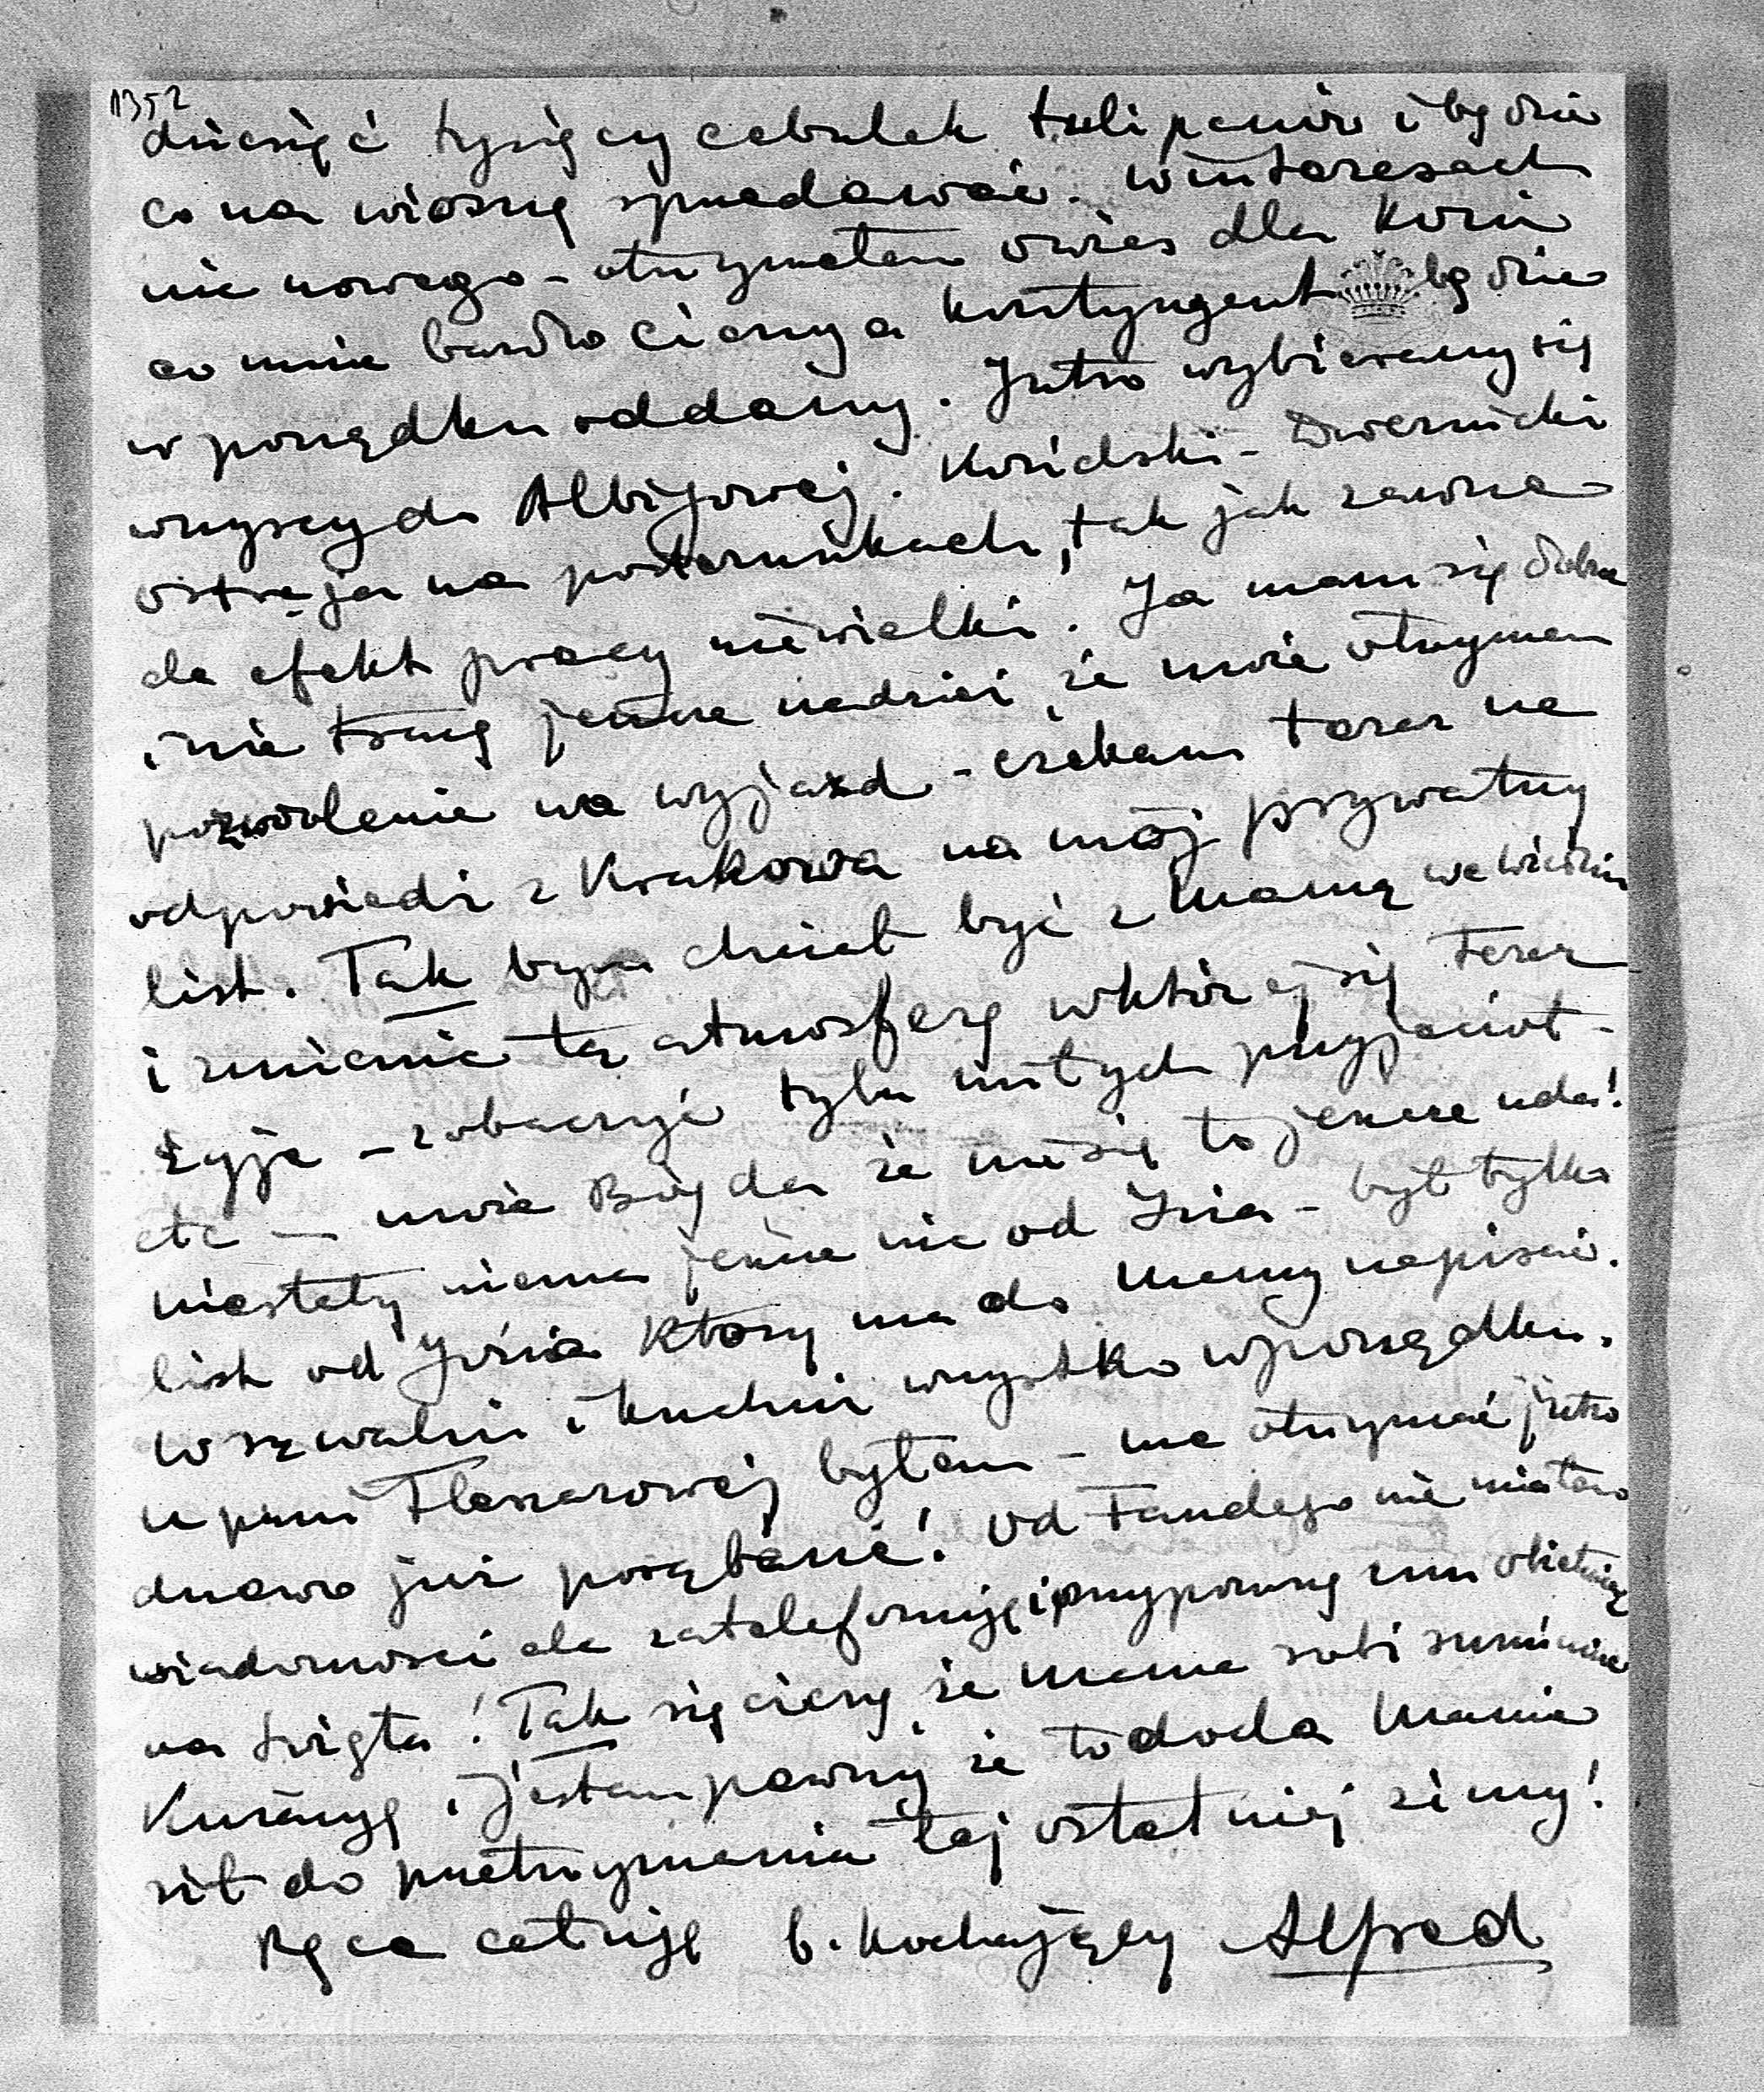 1352
dziesięć tysięcy cebulek tulipanów i będzie
co na wiosnę sprzedawać. W interesach
nic nowego - otrzymałem owies dla koni
co mnie bardzo cieszy a kontyngent będzie
w porządku oddany. Jutro wybieramy się
wszyscy do Albigowej. Kozidski - Dwernicki
ostrają na posterunkach, tak jak zawsze
ale efekt pracy niewielki. Ja mam się dobrze
i nie tracę jeszcze nadziei, że może otrzymam
pozwolenie na wyjazd - czekam teraz na
odpowiedź z Krakowa na mój prywatny
list. Tak bym chciał być z Mamą we Wiedniu
i zmienić tą atmosferę w której się teraz
żyje - zobaczyć tylu miłych przyjaciół -
etc - może Bóg da że mi się to jeszcze uda!
niestety niema jeszcze nic od Izia - był tylko
list od Józia który ma do Mamy napisać.
W szwalni i kuchni wszystko w porządku.
u pani Fleszarowej byłem - ma otrzymać jutro
drzewo już porąbane! Od Fandego nie miałem
wiadomości ale zatelefonuję i przypomnę mu obietnicę
na święta! Tak się cieszę, że Mama robi
Kurację i jestem pewny że to doda Mamie
sił do przetrzymania tej ostatniej zimy!
Ręce całuję b. kochający Alfred